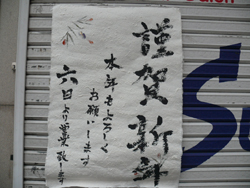 謹賀新年
本年もよろしく
お願いします
六日より営業致します
Salon
S